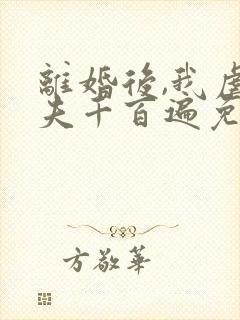 離婚後,我虐
夫千百遍免
方敬華